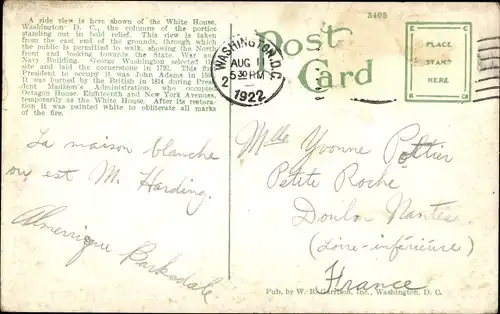 A side view is here shown of the White House,
Washington D. C., the columns of the portico
standing out in bold relief. This view is taken
from the east end of the grounds, through which
the public is permitted to walk, showing the North
front and looking towards the State, War and
Navy Building. George Washington selected the
site and laid cornerstone in 1792. The first
President to occupy it was John Adams in 180
It was burned by the British in 1814 during Pres-
dent Madison's Administration, who occupied
Octagon House, Eighteenth and New York Avenues,
temporarily as the White House. After its restora-
tion it was painted white to obliterate all marks
of the fire.
La maison blanche
ou est M. Harding.
Almerrique Barksdale
3405
Post
Card
WASHINGTON, D.C.
AUG 11
5 30 PM
2
1922
PLACE
STAMP
HERE
Mlle Yvonne Pottier
Petite Roche
Doulon Nantes
(Loire-inférieure)
France
Pub. by W. B. Garrison, Inc., Washington, D. C.